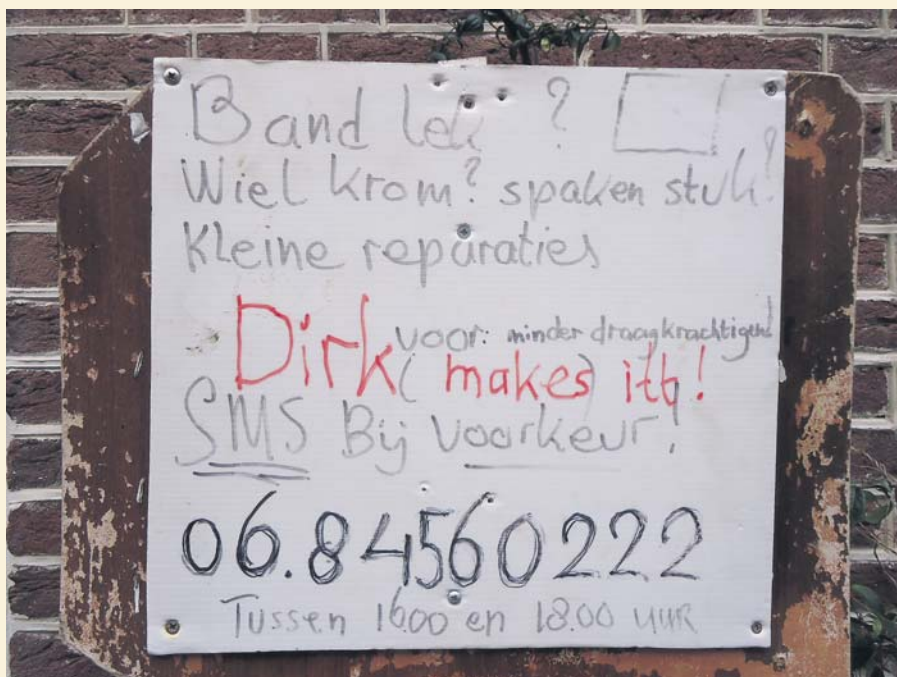 Band lek ?
Wiel krom? spaken stuk?
Kleine reparaties
voor: minder draagkrachtigen!
Dirk (makes) itt!
SMS Bij voorkeur!
06.84560222
Tussen 16.00 en 18.00 uur